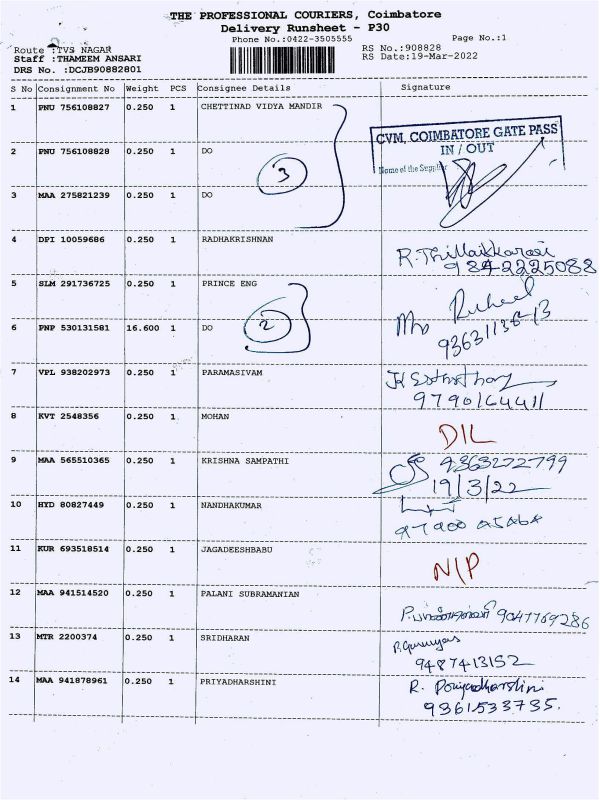 THE PROFESSIONAL COURIERS, Coimbatore
Delivery Runsheet - P30
Phone No.:0422-3505555
Page No.:1
Route :TVS NAGAR
RS No.:908828
Staff :THAMEEM ANSARI
RS Date:19-Mar-2022
DRS No. :DCJB90882801
S No Consignment No Weight PCS Consignee Details Signature
1 PNU 756108827 0.250 1 CHETTINAD VIDYA MANDIR
CVM, COIMBATORE GATE PASS
IN / OUT
2 PNU 756108828 0.250 1 DO
Name of the Supplier
3
3 MAA 275821239 0.250 1 DO
4 DPI 10059686 0.250 1 RADHAKRISHNAN
R. Thillaikkarasi
9842225088
5 SLM 291736725 0.250 1 PRINCE ENG
2
6 PNP 530131581 16.600 1 DO
7 VPL 938202973 0.250 1 PARAMASIVAM
9790164411
8 KVT 2548356 0.250 1 MOHAN
D/L
9 MAA 565510365 0.250 1 KRISHNA SAMPATHI
9363272799
19/3/22
10 HYD 80827449 0.250 1 NANDHAKUMAR
11 KUR 693518514 0.250 1 JAGADEESHBABU
N/P
12 MAA 941514520 0.250 1 PALANI SUBRAMANIAN
9047769286
13 MTR 2200374 0.250 1 SRIDHARAN
9487413152
14 MAA 941878961 0.250 1 PRIYADHARSHINI
R. Priyadharshini
9361533735.